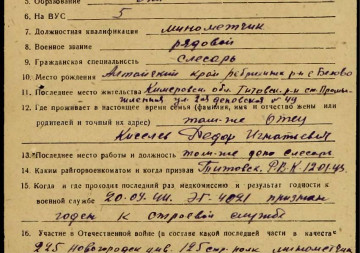 5. Образование
6. На ВУС 5
7. Должностная квалификация минометчик
8. Военное звание рядовой
9. Гражданская специальность слесарь
10. Место рождения Алтайский край Ребрихинск р-н с.
11. Последнее место жительства Кемеровск. обл. Титовск. р-н ст. Промы-
шленная ул. №44
12. Где проживает в настоящее время семья (фамилия, имя и отчество жены или
родителей и точный их адрес) там-же отец
Киселев Федор Игнатевич
13. Последнее место работы и должность там-же депо слесарь
14. Каким райгорвоенкоматом и когда призван Титовск. РВК 12.01.43
15. Когда и где проходил последний раз медкомиссию и результат годности к
военной службе 20.04.44 ЭГ-4021 признан
годен к строевой службе
16. Участие в Отечественной войне (в составе какой последней части в качеств
225 Новгородск див. 125 стр. полк минометчик